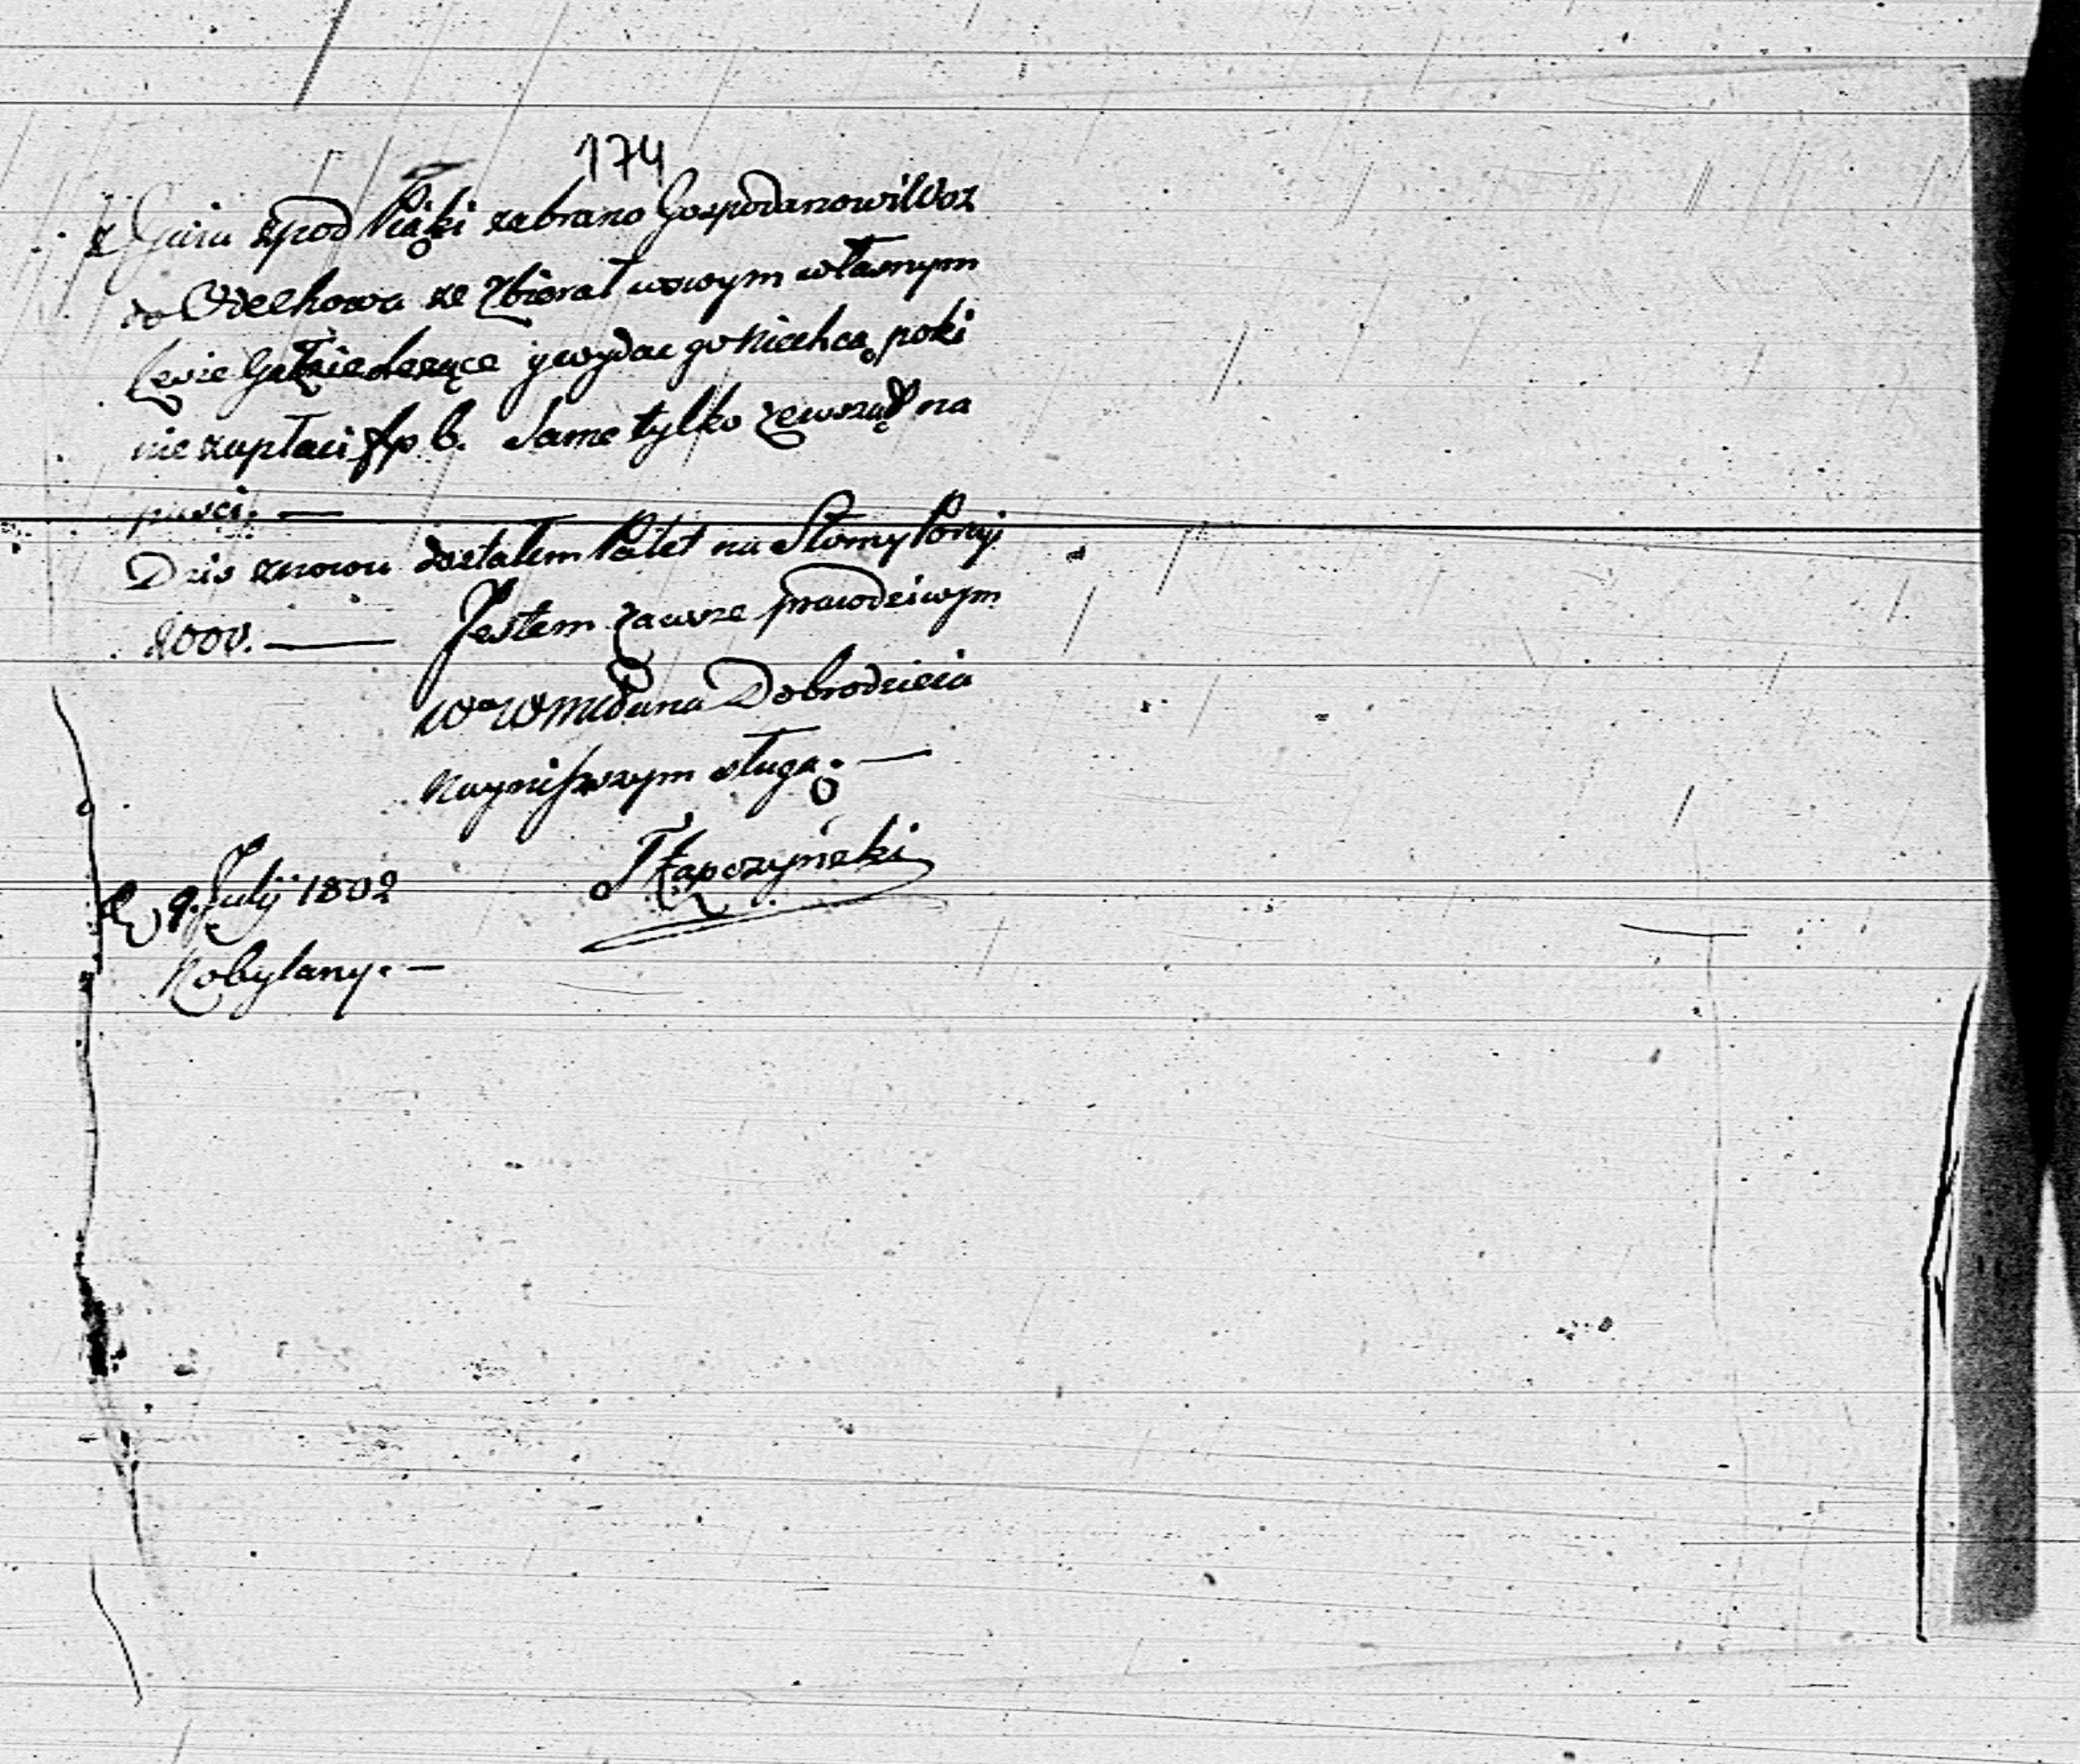 174
z Gaiu zpod Rąki zabrano Gospodarzowi Woz
do Odechowa ze Zbierał w swym własnym
Lesie Gałęzie lezące y wydac go niechcą poki
nie zapłaci fp 6. Same tylko Zewsząd na
pasci. —
Dzis znowu dostałem Palet na Słomy Porcyi
2000. — Jestem Zawsze prawdziwym
WoWMPana Dobrodzieia
Nayniższym sługą. —
TŁapczyński
D 9. Julij 1802
Kobylany. —